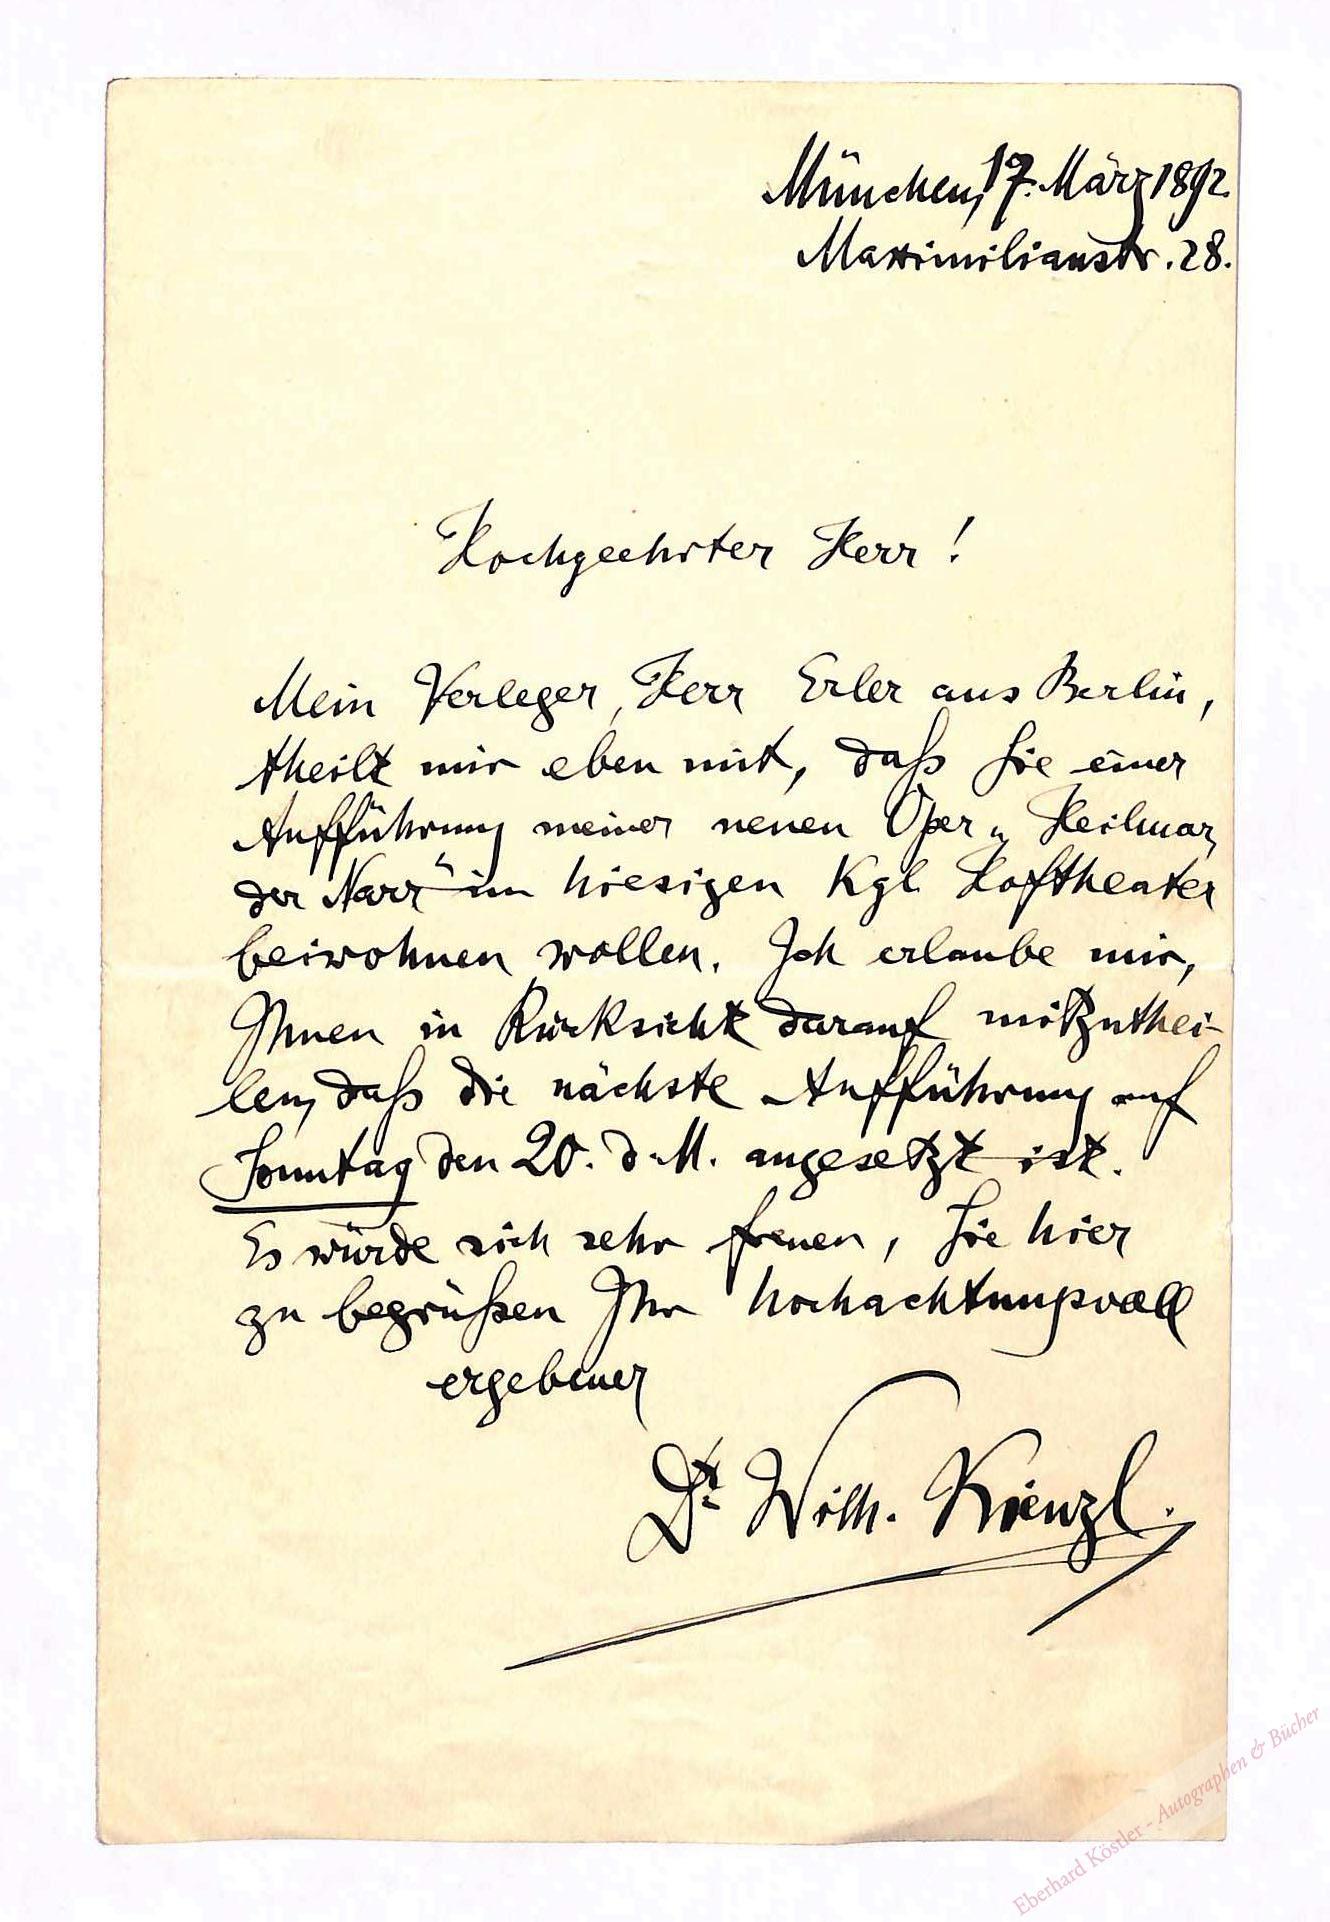 München, 17. März 1892.
Maximilianstr. 28.
Hochgeehrter Herr!
Mein Verleger, Herr Erler aus Berlin,
theilt mir eben mit, daß Sie einer
Aufführung meiner neuen Oper „Heilmar
der Narr“ im hiesigen Kgl. Hoftheater
beiwohnen wollen. Ich erlaube mir,
Ihnen in Rücksicht darauf mitzuthei-
len, daß die nächste Aufführung auf
Sonntag den 20. d. M. angesetzt ist.
Es würde sich sehr freuen, Sie hier
zu begrüßen Ihr hochachtungsvoll
ergebener
Dr. Wilh. Kienzl.
Eberhard Köstler - Autographen & Bücher